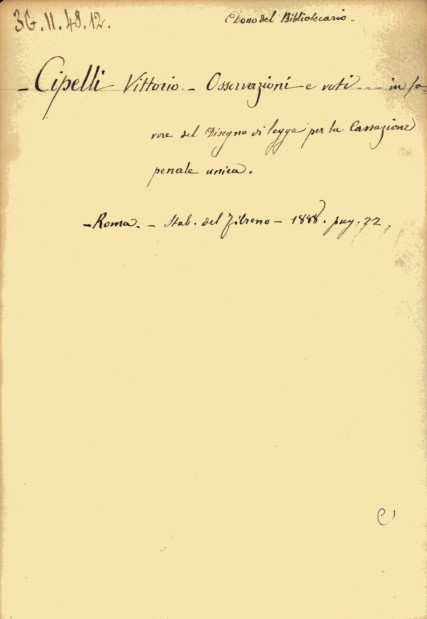 3G. 11. 48. 12.
Dono del Bibliotecario.
- Cipelli Vittorio. - Osservazioni e voti .... in fa-
vore del Disegno di legge per la Cassazione
penale unica.
- Roma. - Stab. del Fibreno - 1888. pag. 32,